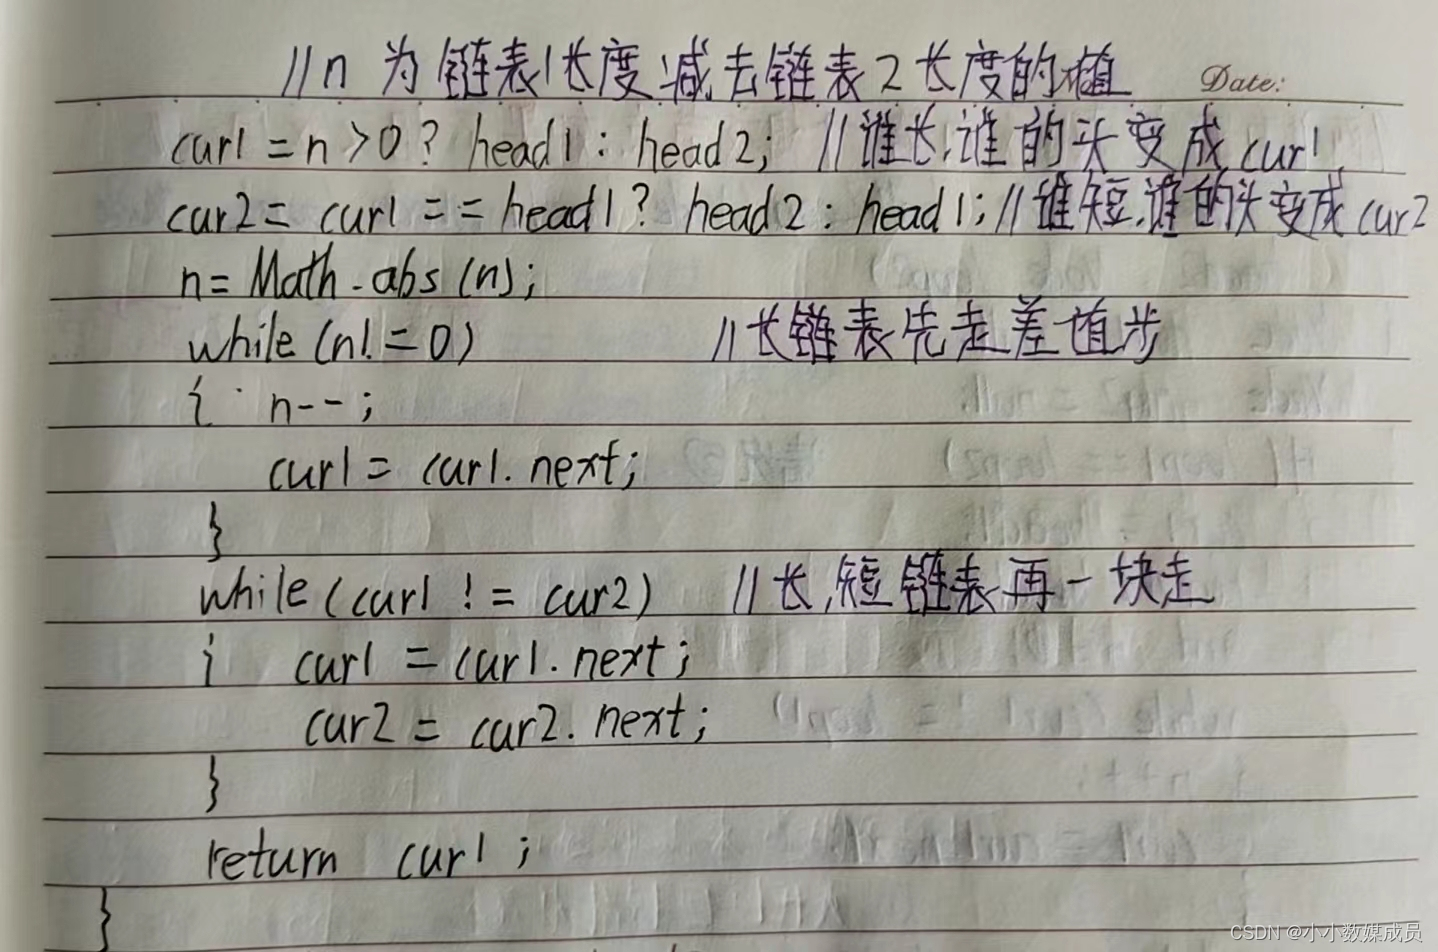 //n 为链表1长度减去链表2长度的值
Date:
cur1 = n > 0 ? head1 : head2; //谁长,谁的头变成cur1
cur2 = cur1 == head1 ? head2 : head1; //谁短,谁的头变成cur2
n = Math.abs(n);
while (n! = 0) //长链表先走差值步
{ n--;
cur1 = cur1.next;
}
while (cur1 != cur2) //长,短链表再一块走
{ cur1 = cur1.next;
cur2 = cur2.next;
}
return cur1;
}
CSDN @小小数媒成员